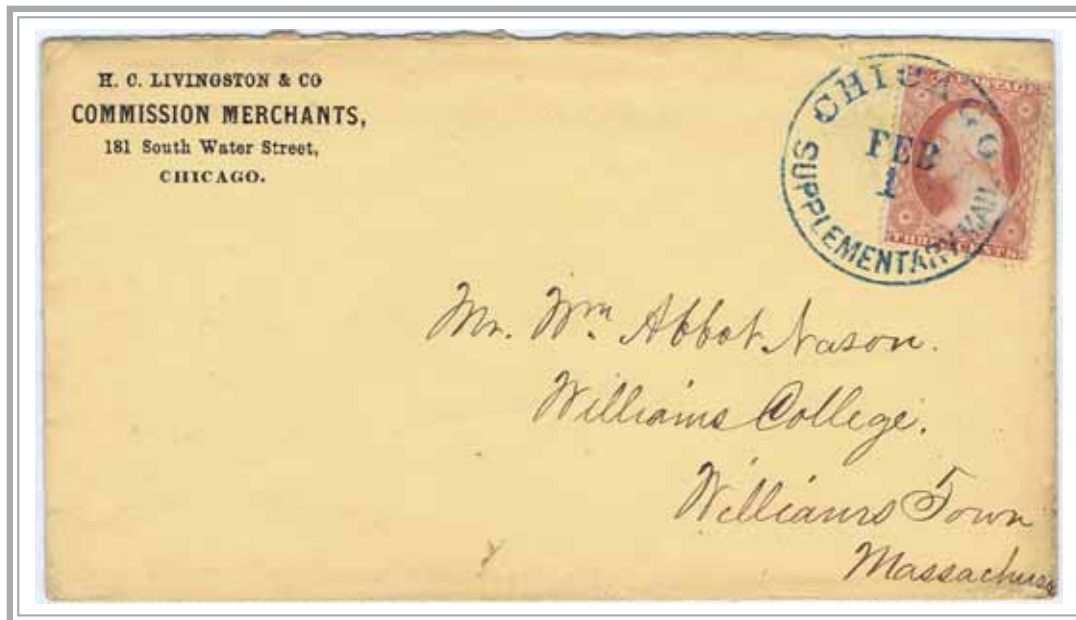 H. C. LIVINGSTON & CO
COMMISSION MERCHANTS,
181 South Water Street,
CHICAGO.
CHICAGO
FEB
1
SUPPLEMENTARY MAIL
THREE CENTS
Mr. Wm Abbot Nason.
Williams College.
Williams Town